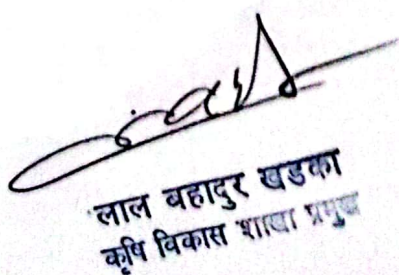 लाल बहादुर खडका
कृषि विकास शाखा प्रमुख